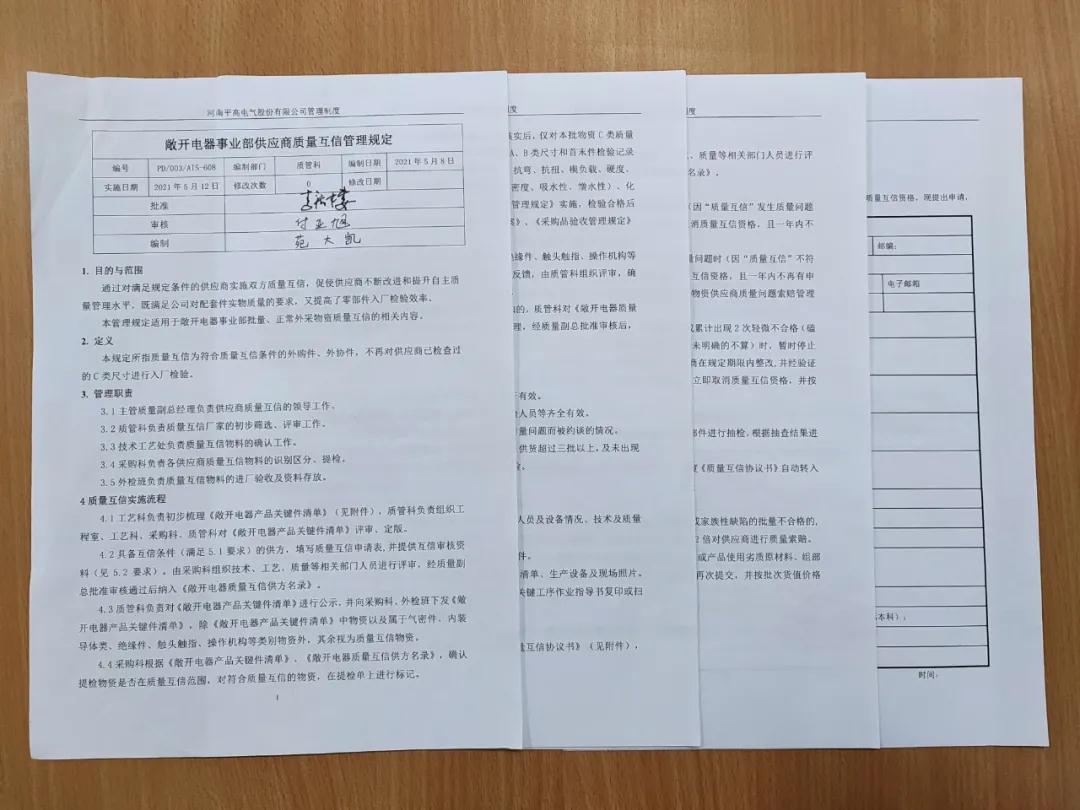 河南平高电气股份有限公司管理制度
敞开电器事业部供应商质量互信管理规定
编号 PD/003/AIS-608 编制部门 质管科 编制日期 2021年5月8日
实施日期 2021年5月12日 修改次数 0 修改日期
批准
审核 付亚旭
编制 范大凯
1. 目的与范围
通过对满足规定条件的供应商实施双方质量互信，促使供应商不断改进和提升自主质
量管理水平，既满足公司对配套件实物质量的要求，又提高了零部件入厂检验效率。
本管理规定适用于敞开电器事业部批量、正常外采物资质量互信的相关内容。
2. 定义
本规定所指质量互信为符合质量互信条件的外购件、外协件，不再对供应商已检查过
的C类尺寸进行入厂检验。
3. 管理职责
3.1主管质量副总经理负责供应商质量互信的领导工作。
3.2质管科负责质量互信厂家的初步筛选、评审工作。
3.3技术工艺处负责质量互信物料的确认工作。
3.4采购科负责各供应商质量互信物料的识别区分、提检。
3.5外检班负责质量互信物料的进厂验收及资料存放。
4质量互信实施流程
4.1工艺科负责初步梳理《敞开电器产品关键件清单》（见附件），质管科负责组织工
程室、工艺科、采购科、质管科对《敞开电器产品关键件清单》评审、定版。
4.2具备互信条件（满足5.1要求）的供方，填写质量互信申请表，并提供互信审核资
料（见5.2要求）。由采购科组织技术、工艺、质量等相关部门人员进行评审，经质量副
总批准审核通过后纳入《敞开电器质量互信供方名录》。
4.3质管科负责对《敞开电器产品关键件清单》进行公示，并向采购科、外检班下发《敞
开电器产品关键件清单》，除《敞开电器产品关键件清单》中物资以及属于气密件、内装
导体类、绝缘件、触头触指、操作机构等类别物资外，其余视为质量互信物资。
4.4采购科根据《敞开电器产品关键件清单》、《敞开电器质量互信供方名录》，确认
提检物资是否在质量互信范围，对符合质量互信的物资，在提检单上进行标记。
1
度
核实后，仅对本批物资C类质量
A、B类尺寸和首末件检验记录
抗弯、抗扭、模负载、硬度、
密度、吸水性、憎水性）、化
管理规定》实施，检验合格后
》、《采购品验收管理规定》
绝缘件、触头触指、操作机构等
反馈，由质管科组织评审，确
的，质管科对《敞开电器质量
理，经质量副总批准审核后，
有效。
人员等齐全有效。
量问题而被约谈的情况。
供货超过三批以上，及未出现
人员及设备情况、技术及质量
件。
清单、生产设备及现场照片。
关键工序作业指导书复印或扫
互信协议书》（见附件），
度
、质量等相关部门人员进行评
名录》。
（因“质量互信”发生质量问题
消质量互信资格，且一年内不
量问题时（因“质量互信”不符
互信资格，且一年内不再有申
物资供应商质量问题索赔管理
或累计出现2次轻微不合格（磕
未明确的不算）时，暂时停止
商在规定期限内整改，并经验证
立即取消质量互信资格，并按
部件进行抽检，根据抽查结果进
《质量互信协议书》自动转入
或家族性缺陷的批量不合格的，
2倍对供应商进行质量索赔。
或产品使用劣质原材料、组部
再次提交，并按批次货值价格
质量互信资格，现提出申请，
邮编：
电子邮箱
本科）：
时间：